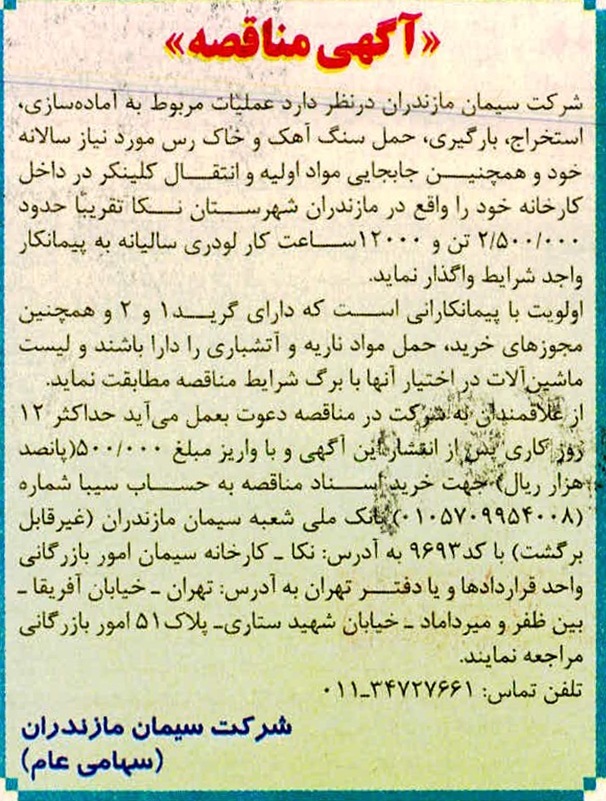 «آگهی مناقصه»
شرکت سیمان مازندران درنظر دارد عملیات مربوط به آماده‌سازی،
استخراج، بارگیری، حمل سنگ آهک و خاک رس مورد نیاز سالانه
خود و همچنیـــن جابجایی مواد اولیه و انتقـــال کلینکر در داخل
کارخانه خود را واقع در مازندران شهرستان نـکا تقریبًا حدود
۲/۵۰۰/۰۰۰ تن و ۱۲۰۰۰ساعت کار لودری سالیانه به پیمانکار
واجد شرایط واگذار نماید.
اولویت با پیمانکارانی است که دارای گریـد۱ و ۲ و همچنین
مجوزهای خرید، حمل مواد ناریه و آتشباری را دارا باشند و لیست
ماشین‌آلات در اختیار آنها با برگ شرایط مناقصه مطابقت نماید.
از علاقمندان به شرکت در مناقصه دعوت بعمل می‌آید حداکثر ۱۲
روز کاری پس از انتشار این آگهی و با واریز مبلغ ۵۰۰/۰۰۰(پانصد
هزار ریال) جهت خرید اسـناد مناقصه به حسـاب سیبا شماره
(۰۱۰۵۷۰۹۹۵۴۰۰۸) بانک ملی شعبه سیمان مازندران (غیرقابل
برگشت) با کد۹۶۹۳ به آدرس: نکا ـ کارخانه سیمان امور بازرگانی
واحد قراردادها و یا دفتـــر تهران به آدرس: تهران ـ خیابان آفریقا ـ
بین ظفر و میرداماد ـ خیابان شهید ستاری‌ـ پلاک۵۱ امور بازرگانی
مراجعه نمایند.
تلفن تماس: ۳۴۷۲۷۶۶۱ـ۰۱۱
شرکت سیمان مازندران
(سهامی عام)